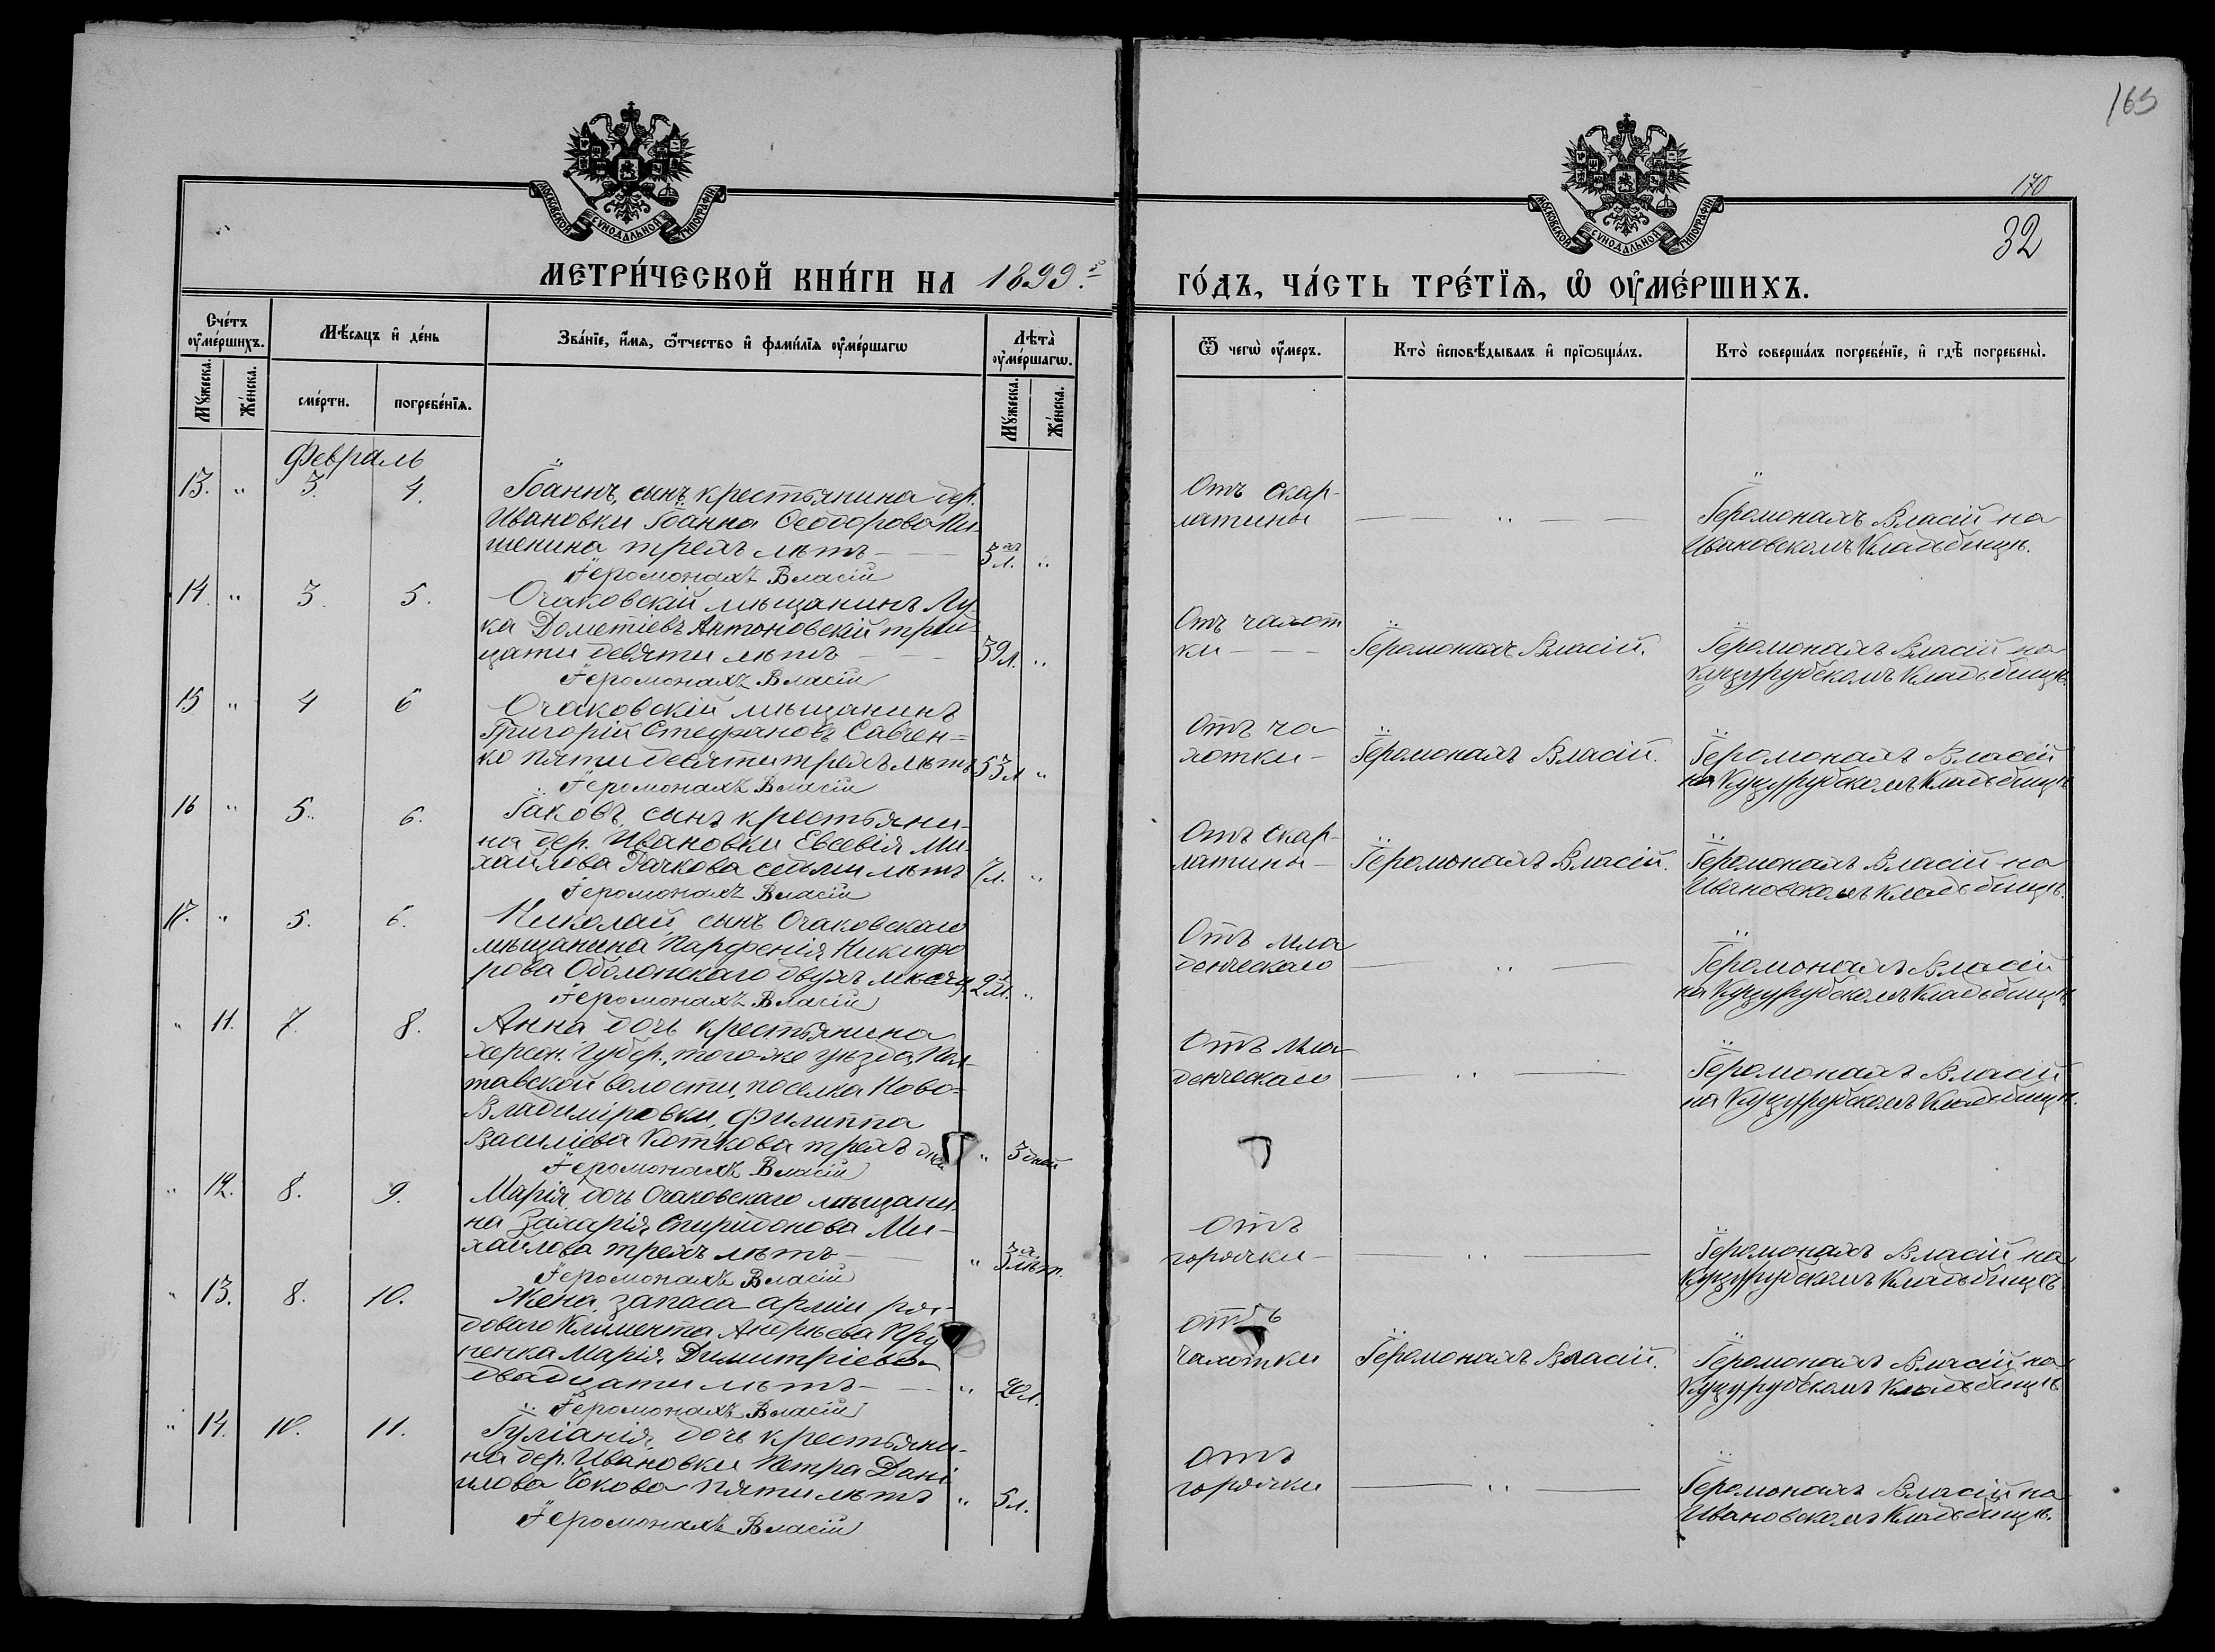 165
170
32
МОСКОВСКОЙ СѴНОДАЛЬНОЙ ТИПОГРАФІИ
МОСКОВСКОЙ СѴНОДАЛЬНОЙ ТИПОГРАФІИ
МЕТРИ́ЧЕСКОЙ КНИ́ГИ НА 1899 г.
ГО́ДЪ, ЧА́СТЬ ТРЕ́ТЇѦ, Ѡ҆ ОУ҆МЕ́РШИХЪ.
Сче́тъ оу҆ме́ршихъ.
Мꙋ́жеска.
Же́нска.
Мѣ́сѧцъ и҆ де́нь
сме́рти.
погребе́нїѧ.
Зва́нїе, и҆́мѧ, ѻ҆́тчество и҆ фами́лїѧ оу҆ме́ршагѡ
Лѣта̀ оу҆ме́ршагѡ.
Мꙋ́жеска.
Же́нска.
Ѿ чегѡ̀ оу҆́меръ.
Кто̀ и҆сповѣ́дывалъ и҆ прїѡбща́лъ.
Кто̀ соверша́лъ погребе́нїе, и҆ гдѣ̀ погребены̀.
Февраль
13. " 3. 4.
Іоаннъ, сынъ крестьянина дер.
Ивановки Іоанна Ѳеодорова Ки-
шенина трехъ лѣтъ — 3 л. "
Іеромонахъ Власій
Отъ скар-
латины — " —
Іеромонахъ Власій на
Ивановскомъ кладбищѣ.
14. " 3. 5.
Очаковскій мѣщанинъ Лу-
ка Дометіевъ Антоновскій трид-
цати девяти лѣтъ — 39 л. "
Іеромонахъ Власій
Отъ чахот
ки — Іеромонахъ Власій.
Іеромонахъ Власій на
Куцурубскомъ кладбищѣ.
15 " 4 6
Очаковскій мѣщанинъ
Григорій Стефановъ Савчен=
ко пятидесятитрехъ лѣтъ 53 л "
Іеромонахъ Власій
Отъ ча
хотки — Іеромонахъ Власій.
Іеромонахъ Власій
на Куцурубскомъ кладбищѣ
16 " 5. 6.
Іаковъ, сынъ крестьяни-
на дер. Ивановки Евсевія Ми-
хайлова Рачкова семи лѣтъ 7 л. "
Іеромонахъ Власій
Отъ скар-
латины — Іеромонахъ Власій.
Іеромонахъ Власій на
Ивановскомъ кладбищѣ.
17. " 5. 6.
Николай, сынъ Очаковскаго
мѣщанина Парфенія Никифо
рова Оболонскаго двухъ мѣсяц. 2 м. "
Іеромонахъ Власій
Отъ мла
денческаго — " —
Іеромонахъ Власій
на Куцурубскомъ кладбищѣ.
" 11. 7. 8.
Анна дочь крестьянина
Херсон. Губер., того-же уѣзда, Пол-
тавской волости, поселка Ново=
Владиміровки, Филиппа
Василіева Коткова трехъ дней " 3 дней
Іеромонахъ Власій
Отъ мла
денческаго — " —
Іеромонахъ Власій
на Куцурубскомъ кладбищѣ.
" 12. 8. 9.
Марія, дочь Очаковскаго мѣщани-
на Захарія Спиридонова Ми-
хайлова трехъ лѣтъ — " 3 лѣт.
Іеромонахъ Власій
Отъ
горячки — " —
Іеромонахъ Власій на
Куцурубскомъ кладбищѣ
" 13. 8. 10.
Жена запаса арміи ря-
доваго Климента Андреева
Марія Димитріева
двадцати лѣтъ — " 20 л.
Іеромонахъ Власій
отъ
чахотки Іеромонахъ Власій.
Іеромонахъ Власій на
Куцурубскомъ кладбищѣ
" 14. 10. 11.
Іуліанія, дочь крестьяни-
на дер. Ивановки Петра Дані
илова пяти лѣтъ " 5 л.
Іеромонахъ Власій
отъ
горячки — " —
Іеромонахъ Власій на
Ивановскомъ кладбищѣ.